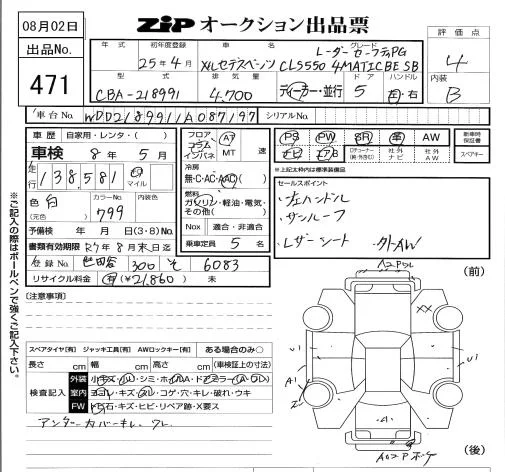 08月02日
ZiP オークション出品票
出品No.
471
評価点
4
内装
B
年式 初年度登録 車名 グレード
25年4月 メルセデスベーンツ CLS550 4MATIC BE SB
レーダーセーフティPG
型式 排気量 ドア ハンドル
CBA-218991 4,700 ディーラー・並行 5 左・右
車台No. WDD2189911A087197 シリアルNo.
車歴 自家用・レンタ・( )
車検 8年5月
走行 138,581 マイル
色 白 カラーNo. 799
(元色)
予備検 年 月 日(3・8)No.
書類有効期限 R7年8月末日迄
登録No. 世田谷 300 そ 6083
リサイクル料金 有(¥21,860) 未
フロア コラム インパネ AT MT 速
冷房
無・C・AC・AAC
燃料
ガソリン・軽油・電気・その他( )
Nox 適合・非適合
乗車定員 5名
PS PW SR 革 AW 新車時保証書
ナビ 社外AW スペアキー
※上記太枠内は標準装備品
セールスポイント
・左ハンドル
・サンルーフ
・レザーシート 外AW
【注意事項】
スペアタイヤ[有] ジャッキ工具[有] AWロックキー[有] ある場合のみ○
長さ cm 幅 cm 高さ cm (車検証上の寸法)
検査記入
外装 小キズ・シミ・ドアミラー(A・フレ)
室内 ヨゴレ・キズ・スレ・コゲ・穴・キレ・破れ・ウキ
FW トビ石・キズ・ヒビ・リペア跡・X要ス
アンダーカバーキレ、ワレ
※ご記入の際はボールペンで強くご記入下さい。
(前)
XX
U1
U1
A1
A
(後)